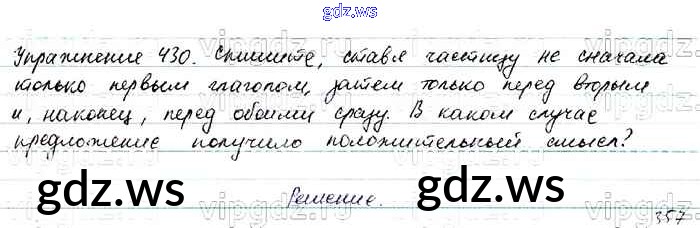 gdz.ws
Упражнение 430. Спишите, ставя частицу не сначала
только первым глаголом, затем только перед вторым
и, наконец, перед обоими сразу. В каком случае
предложение получило положительный смысл?
gdz.ws gdz.ws
Решение.
357